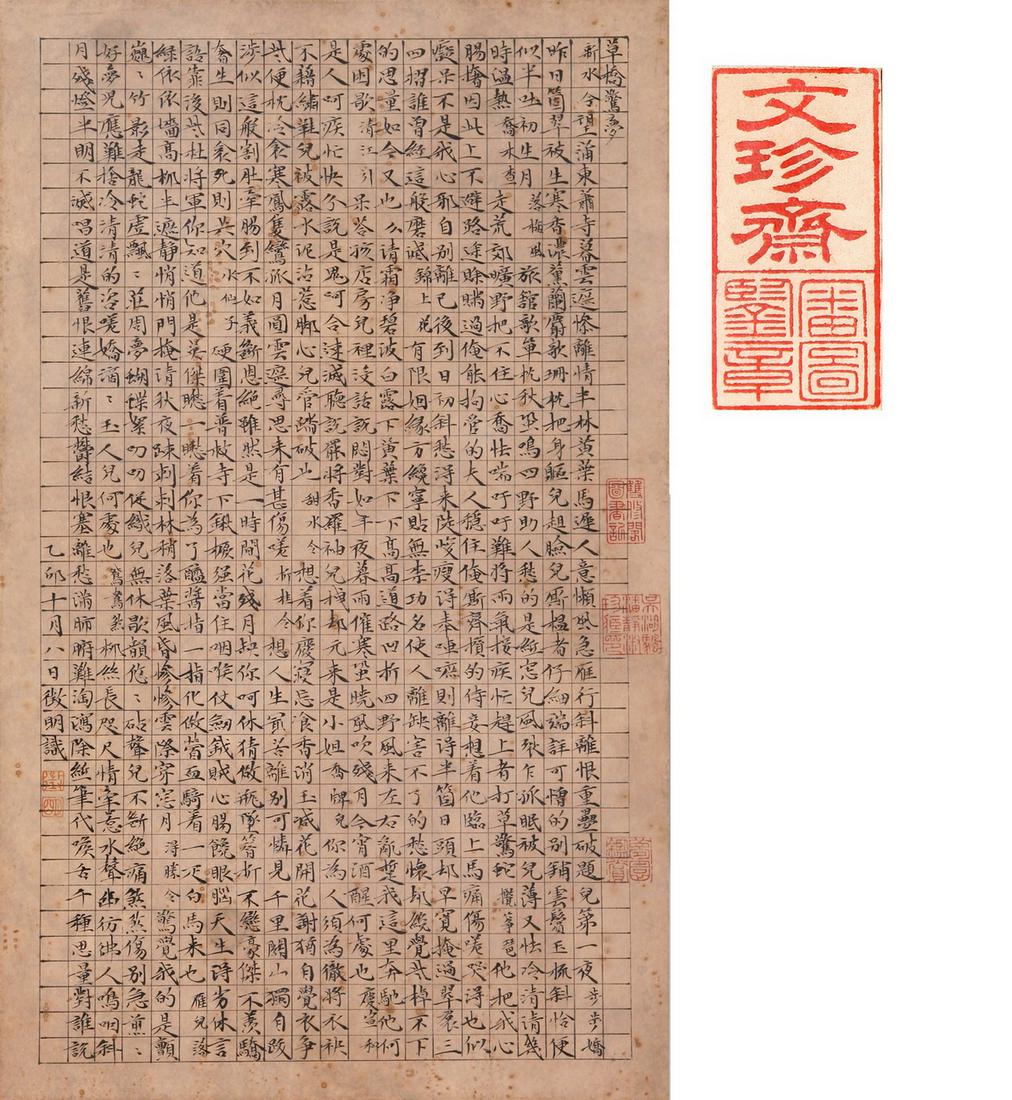 草橋驚夢
新水令望蒲東蕭寺暮雲遮慘離情半林黃葉馬遲人意懶風急雁行斜離恨重疊破題兒第一夜步步嬌
昨日箇翠被生寒香濃薰蘭麝欹珊枕把身軀兒趄臉兒廝搵者仔細端詳可憎的別鋪雲鬢玉梳斜恰便
似半吐初生月落梅風旅舘欹單枕秋蛩鳴四野助人愁的是紙窓兒風裂乍孤眠被兒薄又怯冷清清幾
時溫熱喬木查走荒郊曠野把不住心喬怯喘吁吁難將兩氣接疾忙趕上者打草驚蛇攪箏琶他把我心
腸撦因此上不避路途賒瞞過俺能拘管的夫人穩住俺廝齊攢的侍妾想着他臨上馬痛傷嗟哭得也似
癡呆不是我心邪自別離已後到日初斜愁得來陡峻瘦得來唓嗻則離得半箇日頭却早寬掩過翠裙三
四褶誰曾經這般磨滅錦上花有限姻緣方纔寧貼無柰功名使人離缺害不了的愁懷却纔覺些掉不下
的思量如今又也么清霜淨碧波白露下黃葉下下高高道路凹折四野風來左右亂踅我這里奔馳他何
處困歇清江引呆荅孩店房兒裡沒話說悶對如年夜暮雨催寒蛩曉風吹殘月今宵酒醒何處也慶宣和
是人呵疾忙快分說是鬼呵合速滅聽說罷將香羅袖兒拽却元來是小姐喬牌兒你為人須為徹將衣袂
不藉繡鞋兒被露水泥沾惹脚心兒管踏破也甜水令想着你廢寢忘食香消玉減花開花謝猶自覺衣爭
些便枕冷衾寒鳳隻鸞孤月圓雲遮尋思來有甚傷嗟折桂令想人生最苦離別可憐見千里關山獨自跋
涉似這般割肚牽腸到不如義斷恩絕雖然是一時間花殘月缺你呵休猜做瓶墜簪折不戀豪傑不羨驕
奢生則同衾死則共穴水仙子硬圍着普救寺下鍬撅强當住咽喉仗劍鉞賊心腸饞眼腦天生得劣休言
語靠後些杜將軍你知道他是英傑瞧一瞧着你為了醯醬指一指化做膋血騎着一疋白馬來也雁兒落
綠依依墻高柳半遮靜悄悄門掩清秋夜疎剌剌林稍落葉風昏慘慘雲際穿窓月得勝令驚覺我的是顫
巍〻竹影走龍蛇虛飄〻莊周夢蝴蝶絮叨叨促織兒無休歇韻悠〻砧聲兒不斷絕痛煞煞傷別急煎〻
好夢兒應難捨冷清清的咨嗟嬌滴〻玉人兒何處也鴛鴦煞柳絲長咫尺情牽惹水聲幽彷彿人嗚咽斜
月殘燈半明不滅唱道是舊恨連綿新愁鬱結恨塞離愁滿肺腑難淘瀉除紙筆代喉舌千種思量對誰說
乙卯十月八日徵明識
雙修閣圖書記
文珍齋